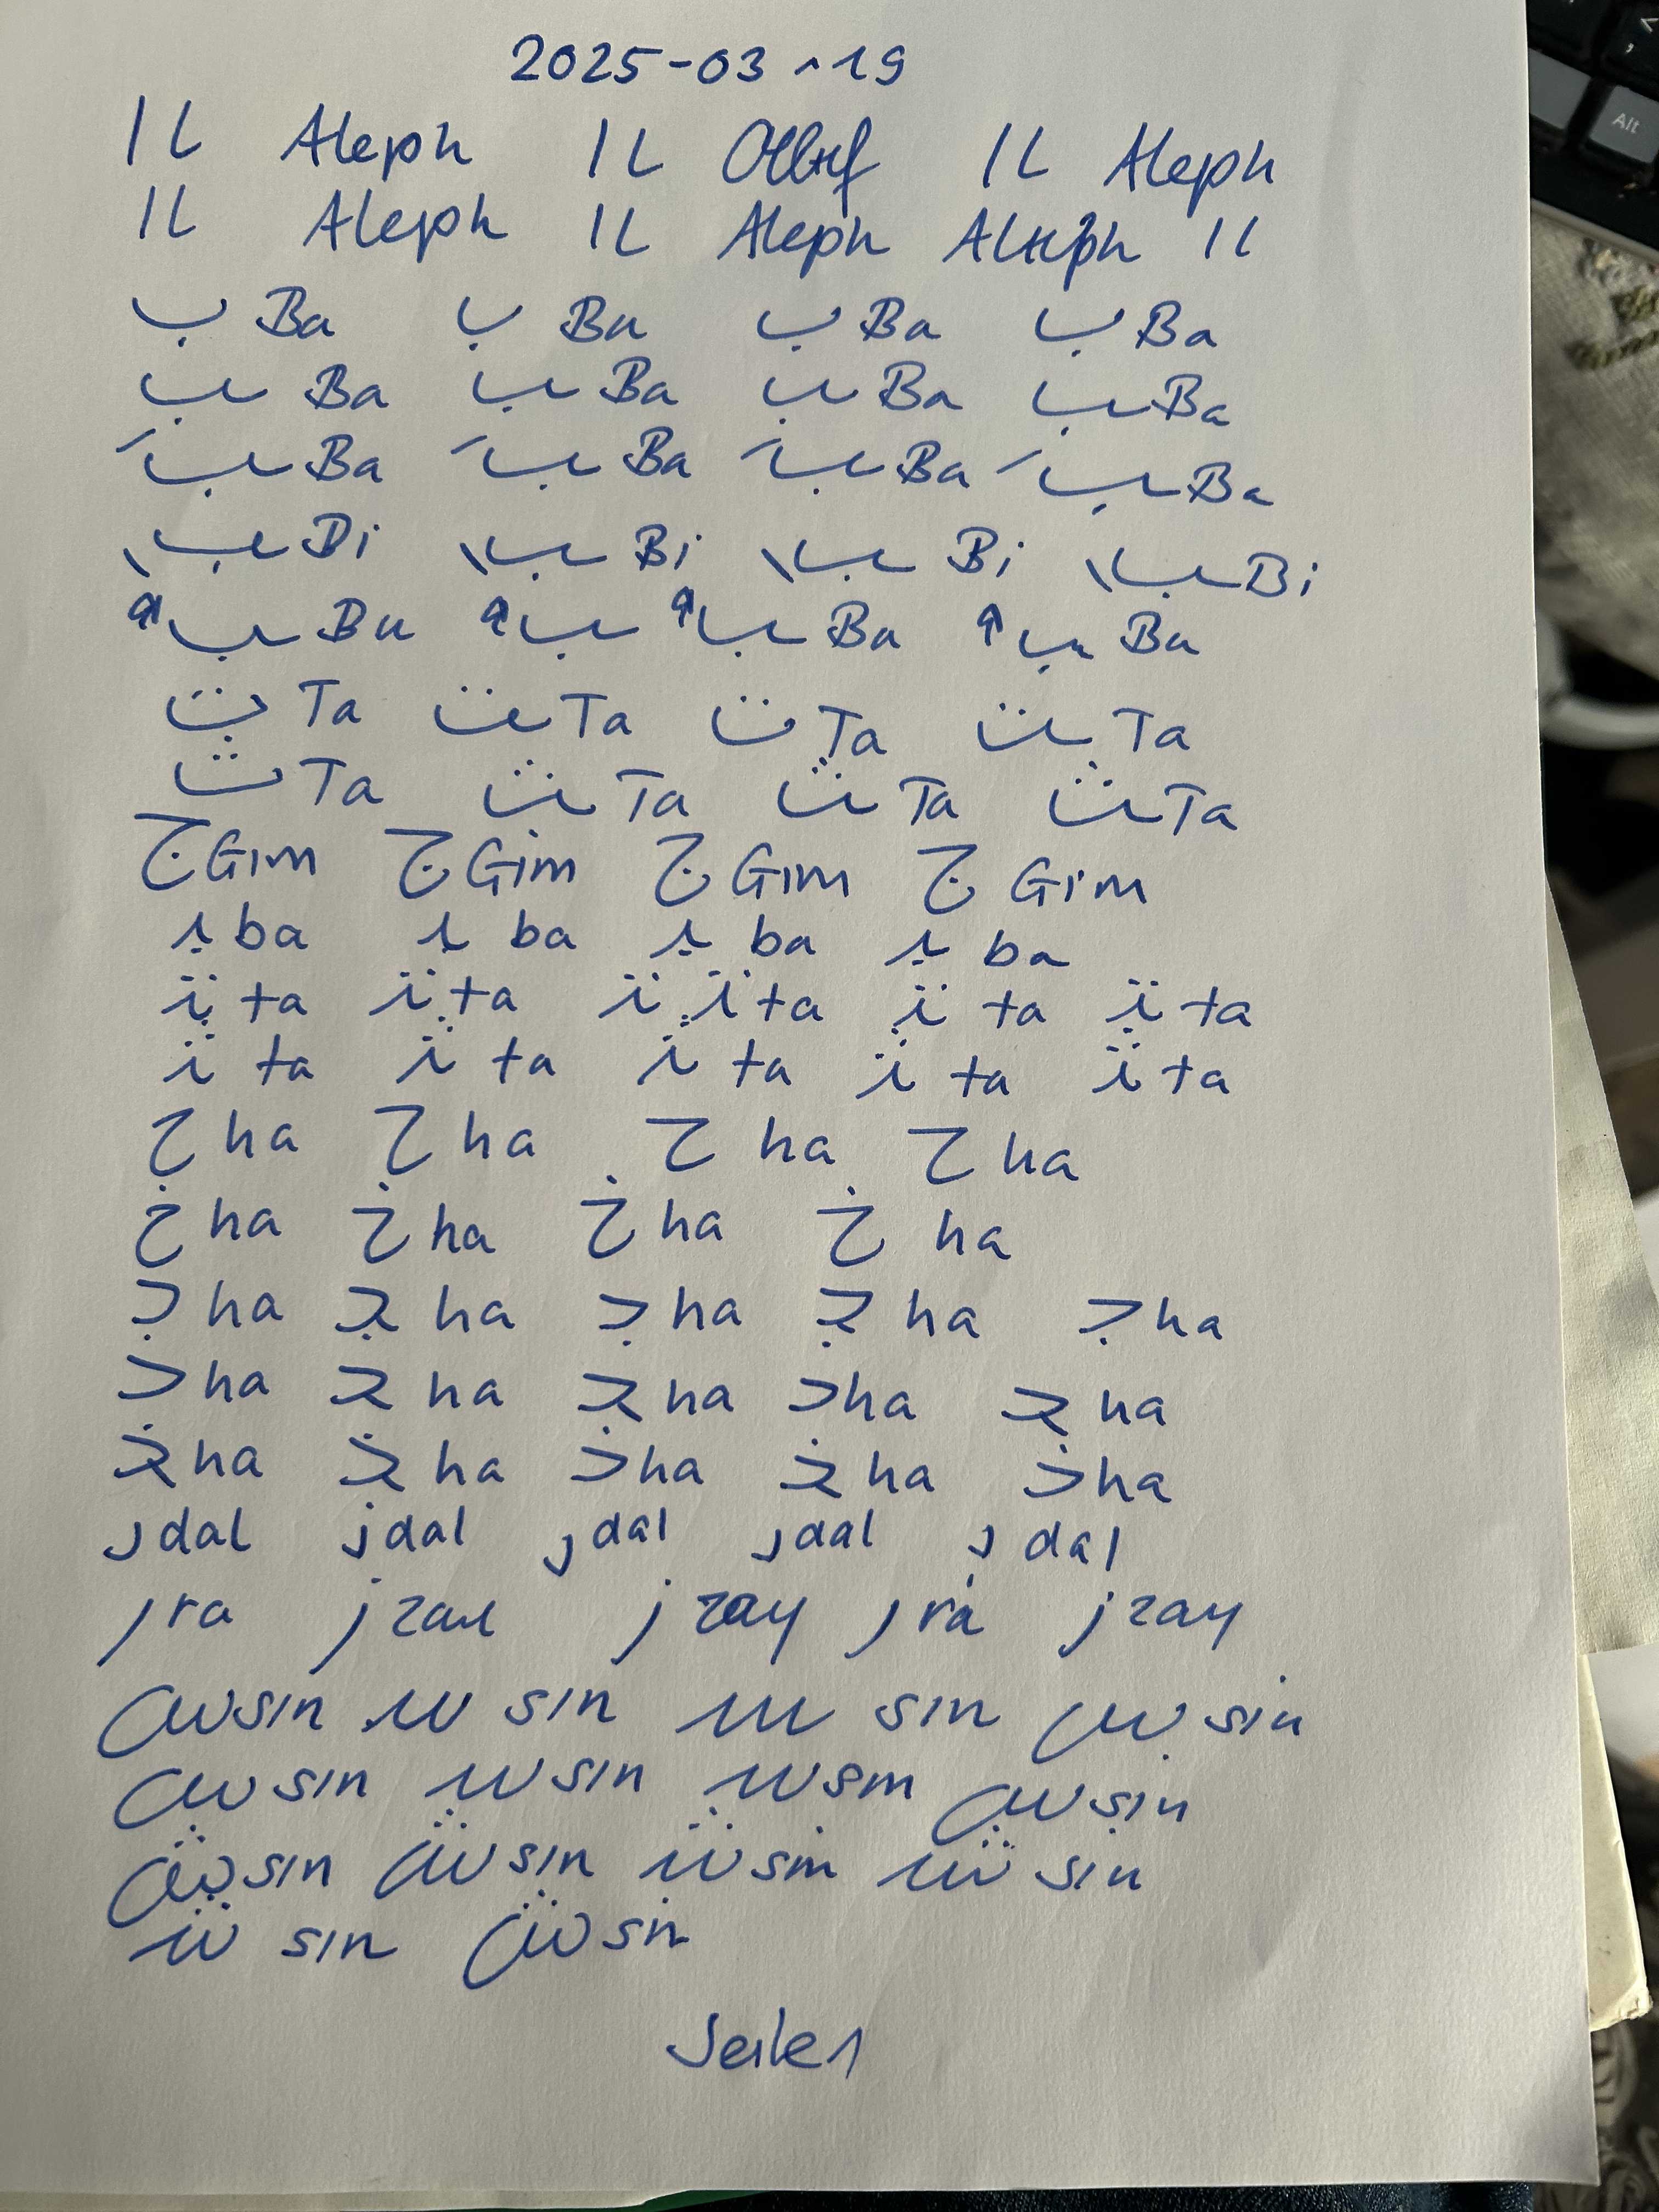 2025-03-19
ا ـا Aleph ا ـا ا ـا Aleph
ا ـا Aleph ا ـا Aleph Aleph ا ـا
ب Ba ب Ba ب Ba ب Ba
ـب Ba ـب Ba ـب Ba ـب Ba
ـبَ Ba ـبَ Ba ـبَ Ba ـبَ Ba
ـبِ Bi ـبِ Bi ـبِ Bi ـبِ Bi
ـبُ Bu ـبُ ـبُ Bu ـبُ Bu
ت Ta ـت Ta ت Ta ـت Ta
ث Ta ـث Ta ـث Ta ـث Ta
ج Gim ج Gim ج Gim ج Gim
ـبـ ba ـبـ ba ـبـ ba ـبـ ba
ـتـ ta ـتـ ta ـتـ ـتـ ta ـتـ ta ـتـ ta
ـثـ ta ـثـ ta ـثـ ta ـثـ ta ـثـ ta
ح ha ح ha ح ha ح ha
خ ha خ ha خ ha خ ha
جـ ha ـجـ ha جـ ha ـجـ ha جـ ha
حـ ha ـحـ ha ـحـ ha حـ ha ـحـ ha
ـخـ ha ـخـ ha خـ ha ـخـ ha خـ ha
د dal ذ dal د dal د dal ذ dal
ر ra ز zay ز zay ر ra ز zay
س sin ـسـ sin ـسـ sin س sin
س sin ـسـ sin ـسـ sin س sin
ش sin ش sin ـشـ sin ـشـ sin
ـشـ sin ش sin
Seite 1